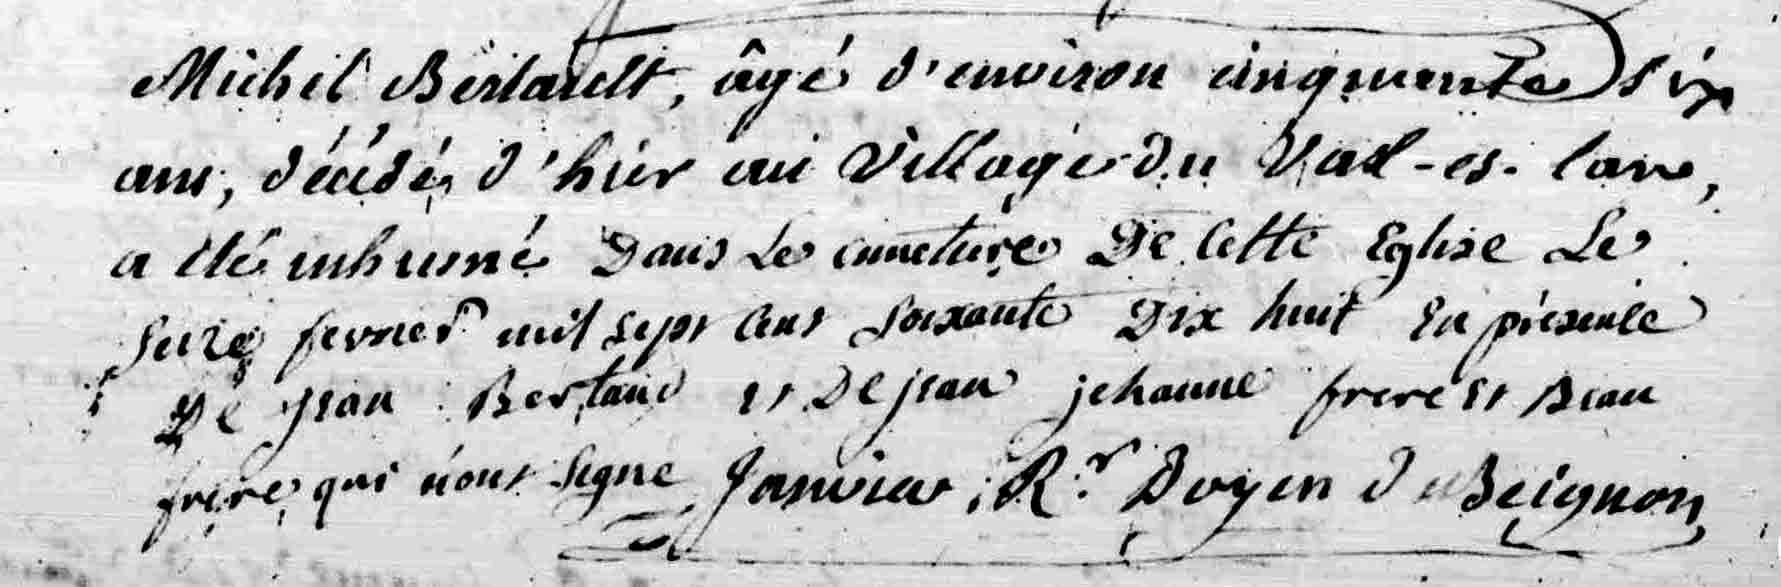 Michel Bertault, âgé d'environ cinquente six
ans, décédé d'hier au Village du Val-es-
a été inhumé Dans Le cimetiere De Cette Eglise Le
seize fevrier mil sept cens soixante Dix huit En présence
De jean Bertaud et De jean jehanne frere et Beau
frere qui n'ont signé Janvier, R.r Doyen du Beignon